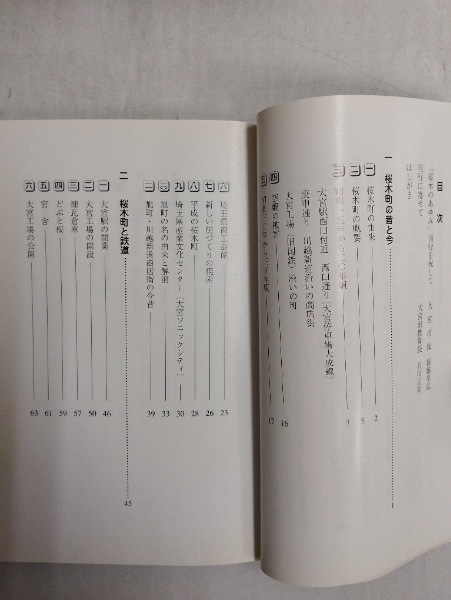 目次
「桜木のあゆみ」刊行を祝して
刊行に寄せて 大宮市教育長
はしがき
一 桜木町の昔と今 1
一 桜木町の由来 2
二 桜木町の概要 5
三 7
大宮駅西口付近 西口通り(大宮停車場大成線)
庚申通り 川越新道沿いの商店街
大宮工場(旧国鉄)沿いの町
四 空襲の被害 16
五 17
六 埼玉県商工会館 23
七 新しい街づくりの模索 26
八 平成の桜木町 28
九 埼玉県産業文化センター(大宮ソニックシティ) 30
一〇 旭町の名の由来と解消 33
一一 旭町・川越新道商店街の今昔 39
二 桜木町と鉄道 45
一 大宮駅の開業 46
二 大宮工場の開設 50
三 煉瓦倉庫 57
四 どぶと桜 59
五 官舎 61
六 大宮工場の公開 63